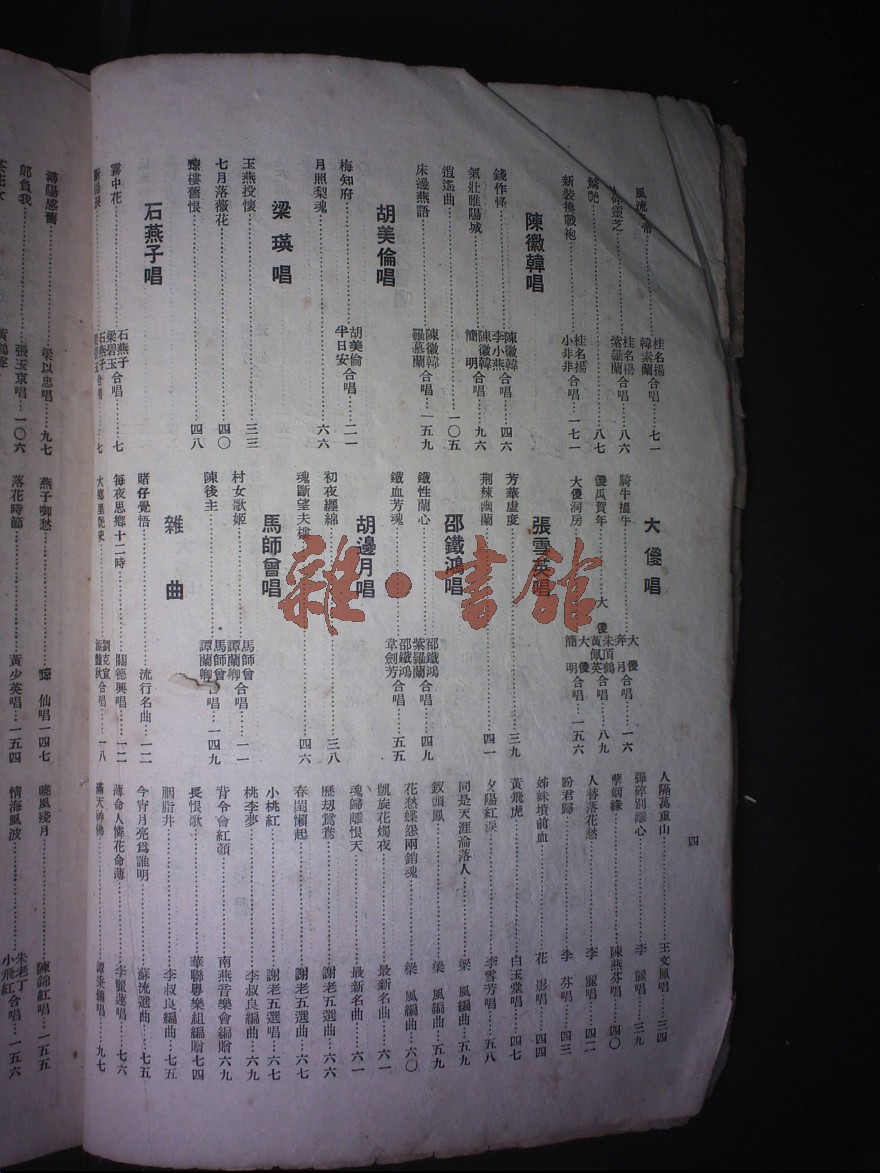 四
風流
桂名揚
韓素蘭合唱…七一
靈芝
桂名揚
紫羅蘭合唱…八六
驚艷…八七
新裝換戰袍…桂名揚
小非非合唱…一七一
陳徽韓唱
錢作怪…陳徽韓
李小燕合唱…四六
氣壯睢陽城…陳徽韓
簡 明合唱…九六
逍遙曲…一〇五
床邊燕語…陳徽韓
羅慕蘭合唱…一五九
胡美倫唱
梅知府…胡美倫
半日安合唱…二一
月照梨魂…六六
梁瑛唱
玉燕投懷…三三
七月落薇花…四〇
瓊樓舊恨…四八
石燕子唱
霧中花…石燕子
梁碧玉合唱…七
石燕子
合唱…七
大儍唱
騎牛搵牛…大儍
奔月合唱…一六
儍瓜賀年…大儍
朱頂鶴
黃佩英合唱…八九
大儍洞房…大儍
簡 明合唱…一五六
張雪英唱
芳華虛度…三九
荆棘幽蘭…四一
邵鐵鴻唱
鐵性蘭心…邵鐵鴻
紫羅蘭合唱…四九
鐵血芳魂…邵鐵鴻
韋劍芳合唱…五五
胡邊月唱
初夜纏綿…三八
魂斷望夫…四六
馬師曾唱
村女歌姬…馬師曾
譚蘭卿合唱…一一
陳後主…馬師曾
譚蘭卿合唱…一四九
雜曲
賭仔覺悟…流行名曲…一二
每夜思鄉十二時…關德興唱…一二
大鄉里…劉克宣
合唱…一八
人隔萬重山…王文鳳唱…三四
彈碎別離心…李 麗唱…三九
孽姻緣…陳燕芬唱…四〇
人替落花愁…李 麗唱…四二
盼君歸…李 芬唱…四三
姊妹墳前血…花 影唱…四四
黃飛虎…白玉堂唱…四七
夕陽紅淚…李雪芳唱…五八
同是天涯淪落人…梁 風編曲…五九
釵頭鳳…梁 風編曲…五九
花愁蝶怨兩銷魂…梁 風編曲…六〇
凱旋花燭夜…最新名曲…六一
魂歸離恨天…最新名曲…六一
歷刼鴛鴦…謝老五選曲…六六
春閨懶起…謝老五選曲…六七
小桃紅…謝老五選唱…六七
桃李夢…李叔良編曲…六九
背令會紅顏…南燕音樂會編贈六九
長恨歌…華聯粵樂組編贈七四
胭脂井…李叔良編曲…七五
今宵月亮爲誰明…蘇流選曲…七五
薄命人憐花命薄…李麗蓮唱…七六
滿天神佛…譚秉鏞唱…九七
潯陽感舊…梁以忠唱…九七
郎負我…張玉京唱…一〇六
茶花女
燕子啣愁…瓊仙唱一四七
落花時節…黃少英唱…一五四
曉風殘月…陳錦紅唱…一五五
情海風波…朱老丁
小飛紅合唱…一五六
雜·書館